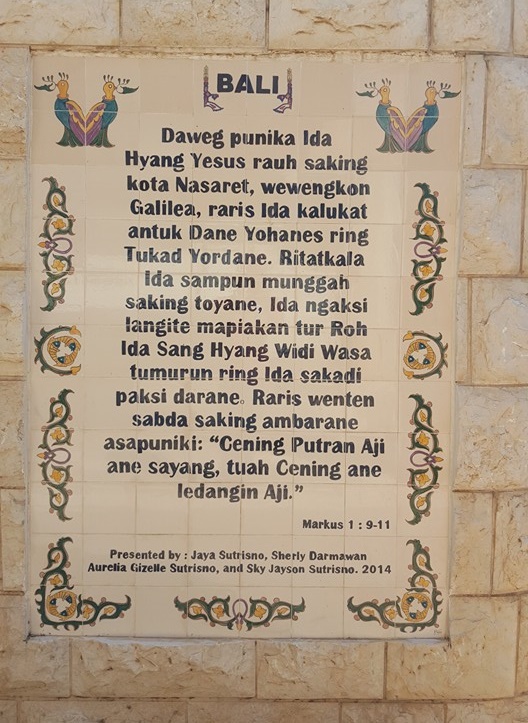 BALI
Daweg punika Ida
Hyang Yesus rauh saking
kota Nasaret, wewengkon
Galilea, raris Ida kalukat
antuk Dane Yohanes ring
Tukad Yordane. Ritatkala
Ida sampun munggah
saking toyane, Ida ngaksi
langite mapiakan tur Roh
Ida Sang Hyang Widi Wasa
tumurun ring Ida sakadi
paksi darane. Raris wenten
sabda saking ambarane
asapuniki: “Cening Putran Aji
ane sayang, tuah Cening ane
ledangin Aji.”
Markus 1 : 9-11
Presented by : Jaya Sutrisno, Sherly Darmawan
Aurelia Gizelle Sutrisno, and Sky Jayson Sutrisno. 2014